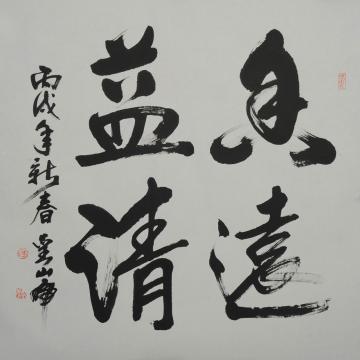 香遠
益清
丙戌年新春